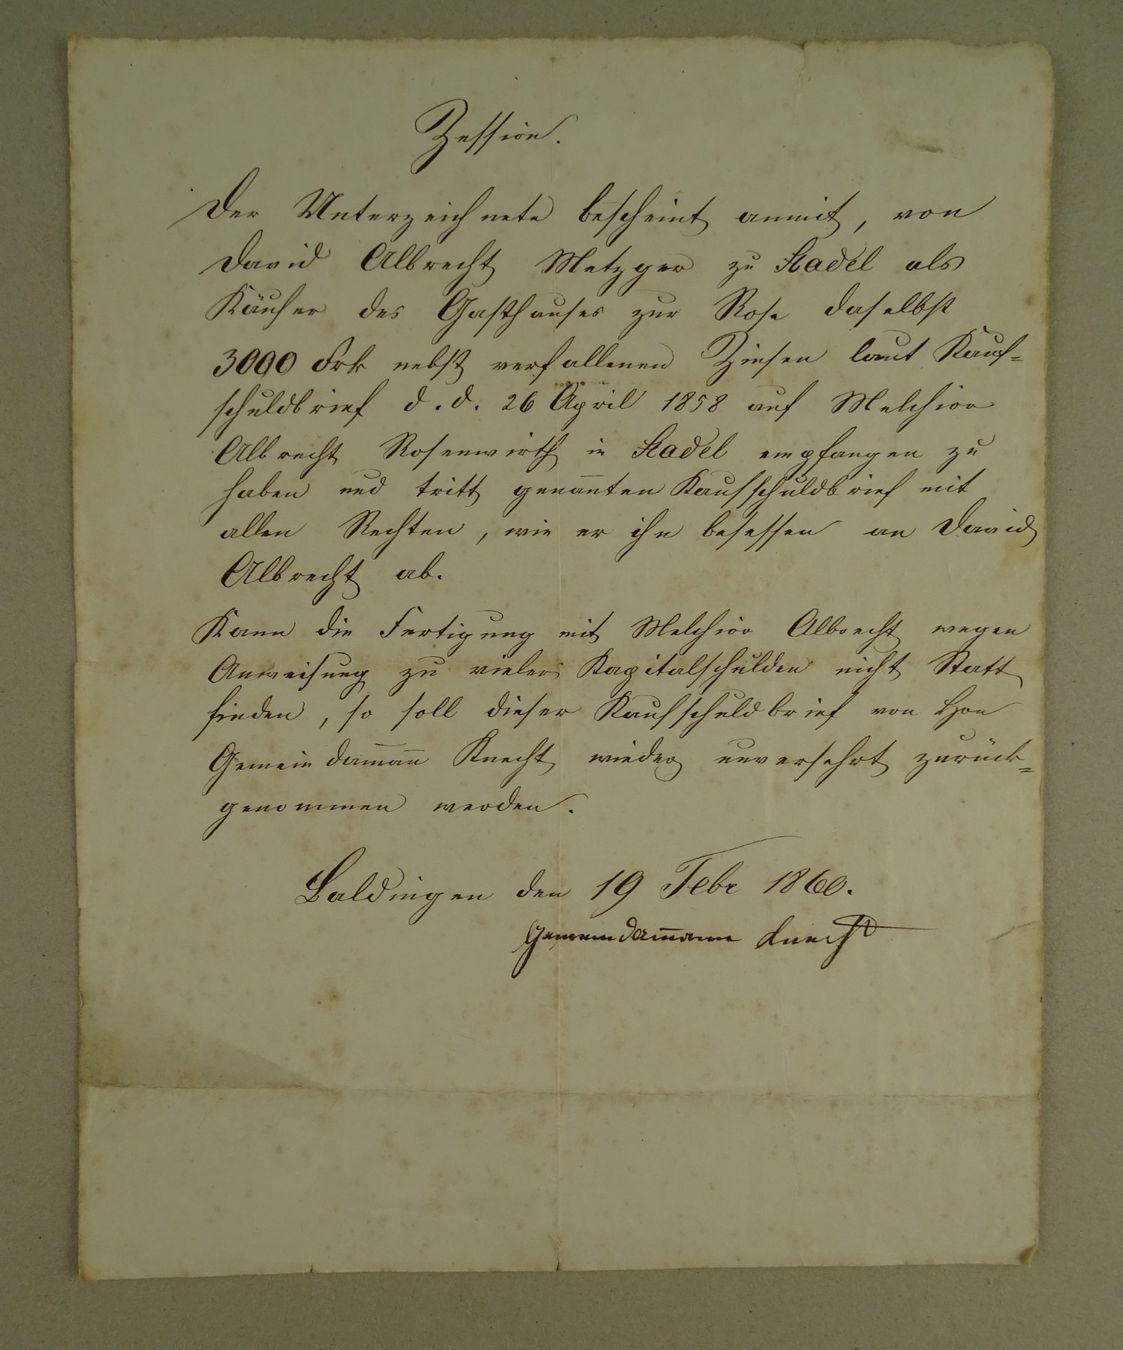 Zession.
Der Unterzeichnete bescheint anmit, von
David Albrecht Metzger zu Stadel als
Käufer des Gasthauses zur Rose daselbst
3000 Frk nebst verfallenen Zinsen laut Kauf=
schuldbrief d. d. 26 April 1858 auf Melchior
Albrecht Rosenwirth in Stadel empfangen zu
haben und tritt genan̅ten Kaufschuldbrief mit
allen Rechten, wie er ihn besessen an David
Albrecht ab.
Kann die Fertigung mit Melchior Albrecht wegen
Anweisung zu vieler Kapitalschulden nicht Statt
finden, so soll dieser Kaufschuldbrief von Hrn
Gemeindam̅an̅ Knecht wieder unversehrt zurück=
genommen werden.
Baldingen den 19 Febr 1860.
Gemeindam̅ann Knecht